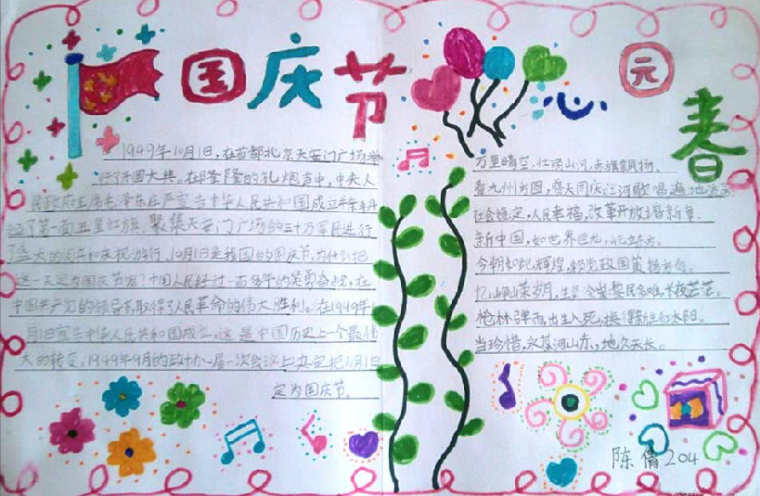 国庆节
心
园
春
1949年10月1日,在首都北京天安门广场举
行了开国大典。在隆隆的礼炮声中,中央人
民政府主席毛泽东庄严宣告中华人民共和国成立并亲手升
起了第一面五星红旗。聚集天安门广场的三十万军民进行
了盛大的阅兵和庆祝游行。10月1日是我国的国庆节,为什么把
这一天定为国庆节呢?中国人民经过一百多年的英勇奋战,在
中国共产党的领导下,取得了人民革命的伟大胜利。在1949年1
月1日宣告中华人民共和国成立。这是中国历史上一个最伟
大的转变,1949年9月的政协一届一次会议上决定把10月1日
定为国庆节。
万里晴空,江河山川,
九州方圆,普天同庆,江河歌唱遍地
社会稳定,人民幸福,改革开放谱新章
新中国,如世界巨龙,屹立东方。
今朝如此辉煌,
忆峥嵘岁月,
枪林弹雨出生入死,换得红太阳。
当珍惜,永葆河山在,地久天长。
陈倩204